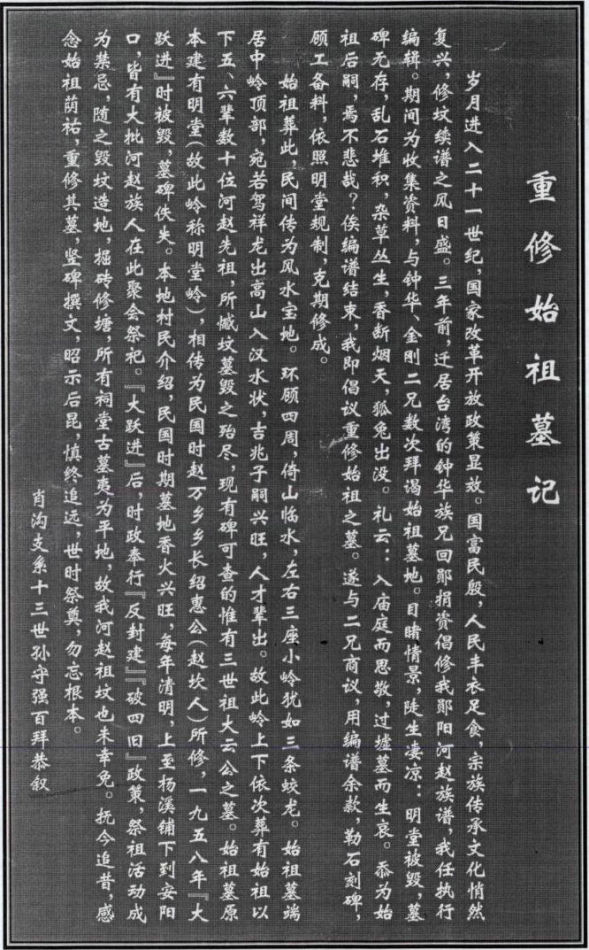 重修始祖墓记
岁月进入二十一世纪，国家改革开放政策显效。国富民殷，人民丰衣足食，宗族传承文化悄然
复兴，修坟续谱之风日盛。三年前，迁居台湾的钟华族兄回郧捐资倡修我郧阳河赵族谱，我任执行
编辑。期间为收集资料，与钟华、金刚二兄数次拜谒始祖墓地。目睹情景，陡生凄凉：明堂被毁，墓
碑无存，乱石堆积，杂草丛生，香断烟灭，狐兔出没。礼云：入庙庭而思敬，过墟墓而生哀。忝为始
祖后嗣，焉不悲哉？俟编谱结束，我即倡议重修始祖之墓。遂与二兄商议，用编谱余款，勒石刻碑，
顾工备料，依照明堂规制，克期修成。
始祖葬此，民间传为风水宝地。环顾四周，倚山临水，左右三座小岭犹如三条蛟龙。始祖墓端
居中岭顶部，宛若驾祥龙出高山入汉水状，吉兆子嗣兴旺，人才辈出。故此岭上下依次葬有始祖以
下五、六辈数十位河赵先祖，所憾坟墓毁之殆尽，现有碑可查的惟有三世祖大云公之墓。始祖墓原
本建有明堂(故此岭称明堂岭)，相传为民国时赵万乡乡长绍惠公(赵坎人)所修，一九五八年『大
跃进』时被毁，墓碑佚失。本地村民介绍，民国时期墓地香火兴旺，每年清明，上至杨溪铺下到安阳
口，皆有大批河赵族人在此聚会祭祀。『大跃进』后，时政奉行『反封建』『破四旧』政策，祭祖活动成
为禁忌，随之毁坟造地，掘砖修塘，所有祠堂古墓夷为平地，故我河赵祖坟也未幸免。抚今追昔，感
念始祖荫祐，重修其墓，竖碑撰文，昭示后昆，慎终追远，世时祭奠，勿忘根本。
肖沟支系十三世孙守强百拜恭叙